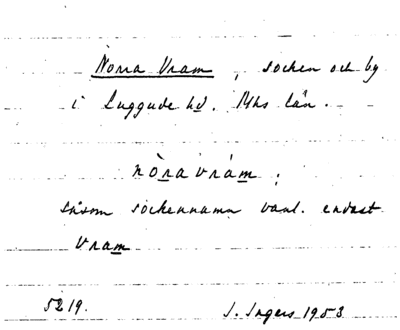 Norra Vram, socken och by
i Luggude hd. Mhs län.
nòravrám;
såsom sockennamn vanl. endast
vram
5219.
I. Ingers 1953